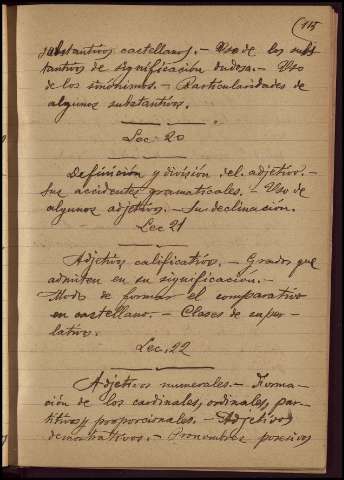 (115
substantivos castellanos.— Uso de los subs
tantivos de significación dudosa.— Uso
de los sinónimos.— Particularidades de
algunos substantivos.
Lec. 20
Definición y división del adjetivo.—
Sus accidentes gramaticales.— Uso de
algunos adjetivos.— Su declinación.
Lec 21
Adjetivos calificativos.— Grados que
admiten en su significación.—
Modo de formar el comparativo
en castellano.— Clases de super-
lativo.
Lec. 22
Adjetivos numerales.— Forma-
ción de los cardinales, ordinales, par-
titivos y proporcionales.— Adjetivos
demostrativos.— Pronombres posesivos